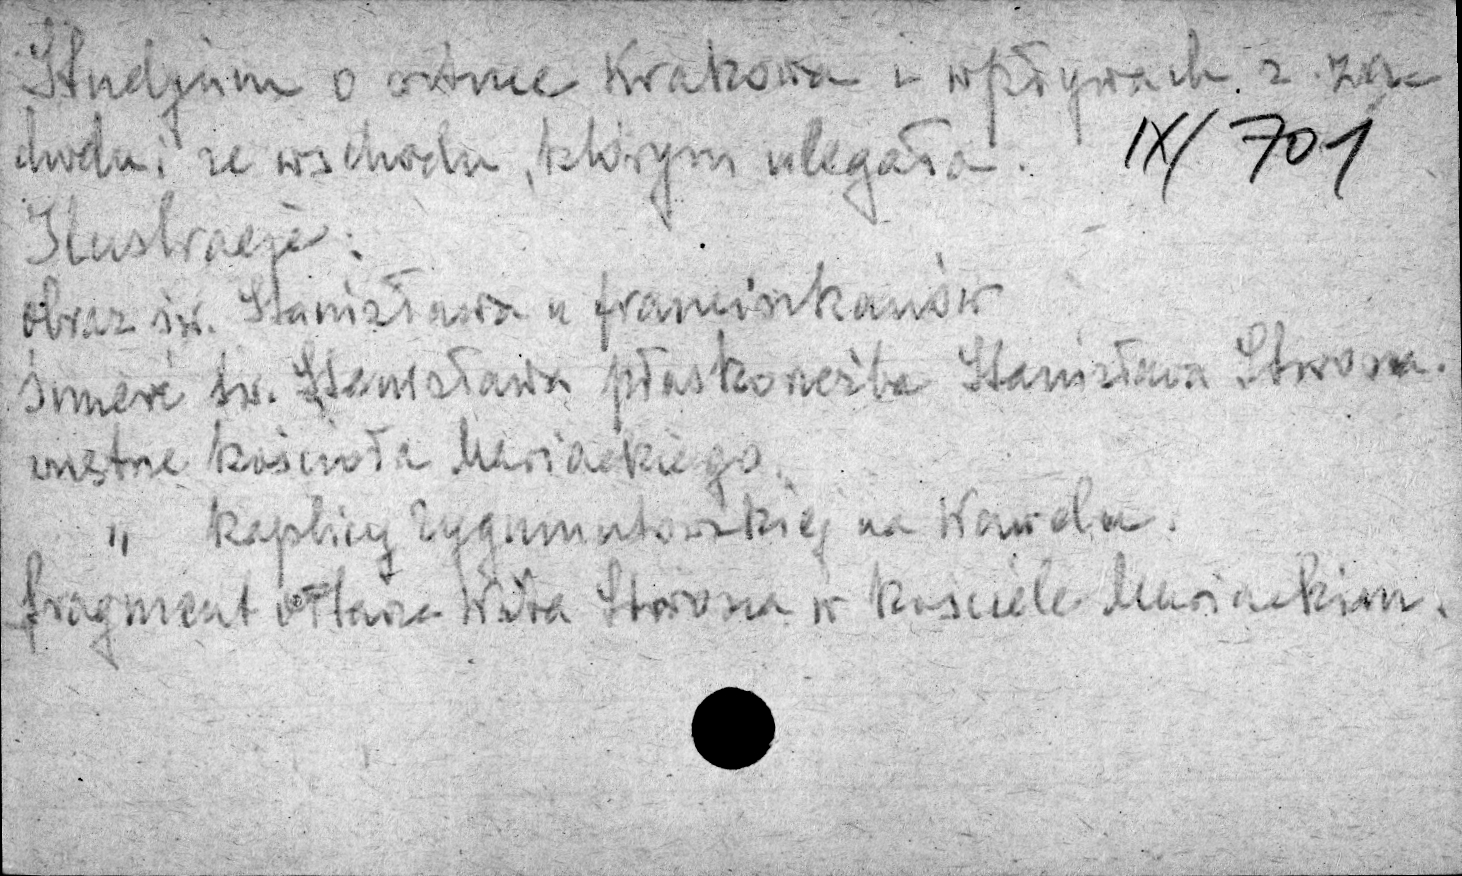 Studjum o sztuce Krakowa i wpływach z za-
chodu i ze wschodu, którym ulegała.
IX/701
Ilustracje:
obraz św. Stanisława u franciszkanów
śmierć św. Stanisława płaskorzeźba Stanisława Stwosza.
wnętrze kościoła Mariackiego.
„ kaplicy zygmuntowskiej na Wawelu.
fragment ołtarza Wita Stwosza w kościele Mariackim.